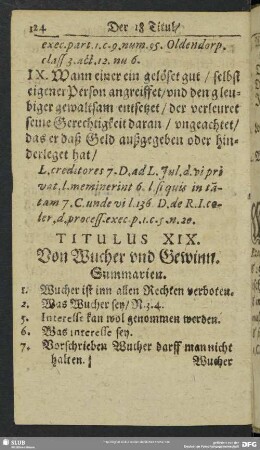 124 Der 18 Titul/
exec.part.1.c.9.num.95. Oldendorp.
class 3.act.12.nu 6.
IX. Wann einer ein gelöset gut / selbst
eigener Person angreiffet/vnd den gleu-
biger gewaltsam entsetzet / der verleuret
seine Gerechtigkeit daran / vngeachtet/
das er daß Geld außgegeben oder hin-
derleget hat/
L. creditores 7. D, ad L. Jul. d. vi pri
vat, l. meminerint 6. l. si quis in tā-
tam 7. C. unde vi l. 136 D. de R. I. cœ-
ler, d. process. exec. p. 1. c. 5. n. 20.
TITULUS XIX.
Von Wucher vnd Gewinn.
Summarien.
1. Wucher ist inn allen Rechten verboten.
2. Was Wucher sey/ R. 3.4.
5. Interesse kan wol genommen werden.
6. Was interesse sey.
7. Vorschrieben Wucher darff man nicht
halten.
Wucher
SLUB
DFG